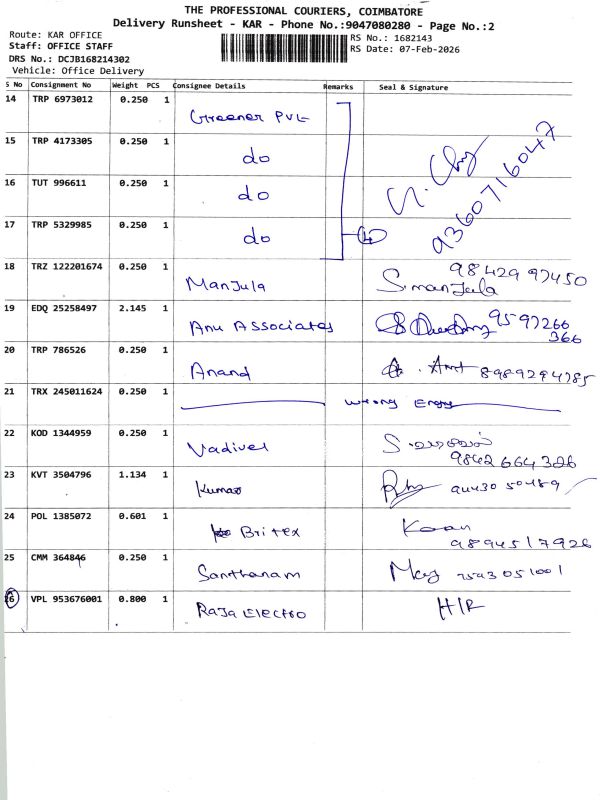 THE PROFESSIONAL COURIERS, COIMBATORE
Delivery Runsheet - KAR - Phone No.:9047080280 - Page No.:2
Route: KAR OFFICE
Staff: OFFICE STAFF
DRS No.: DCJB168214302
Vehicle: Office Delivery
RS No.: 1682143
RS Date: 07-Feb-2026
S No Consignment No Weight PCS Consignee Details Remarks Seal & Signature
14 TRP 6973012 0.250 1 Greener Pvt
15 TRP 4173305 0.250 1 do
16 TUT 996611 0.250 1 do
9360716047
17 TRP 5329985 0.250 1 do 4
18 TRZ 122201674 0.250 1 Manjula S.manjula 98429 97450
19 EDQ 25258497 2.145 1 Anu Associates 9597266
366
20 TRP 786526 0.250 1 Anand 8989294785
21 TRX 245011624 0.250 1 wrong Entry
22 KOD 1344959 0.250 1 Vadivel
9842664326
23 KVT 3504796 1.134 1 Kumar
24 POL 1385072 0.601 1 Britex
9894517926
25 CMM 364846 0.250 1 Santhanam
26 VPL 953676001 0.800 1 Raja Electro H/R